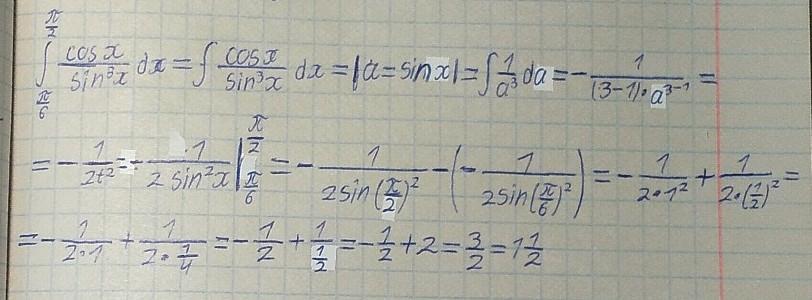 ∫_{π/6}^{π/2} cosx/sin³x dx = ∫ cosx/sin³x dx = |a = sinx| = ∫ 1/a³ da = - 1/((3-1)·a³⁻¹) =
= - 1/2t² = - 1/2 sin²x |_{π/6}^{π/2} = - 1/2sin(π/2)² - (- 1/2sin(π/6)²) = - 1/2·1² + 1/2·(1/2)² =
= - 1/2·1 + 1/(2·1/4) = - 1/2 + 1/(1/2) = - 1/2 + 2 = 3/2 = 1 1/2